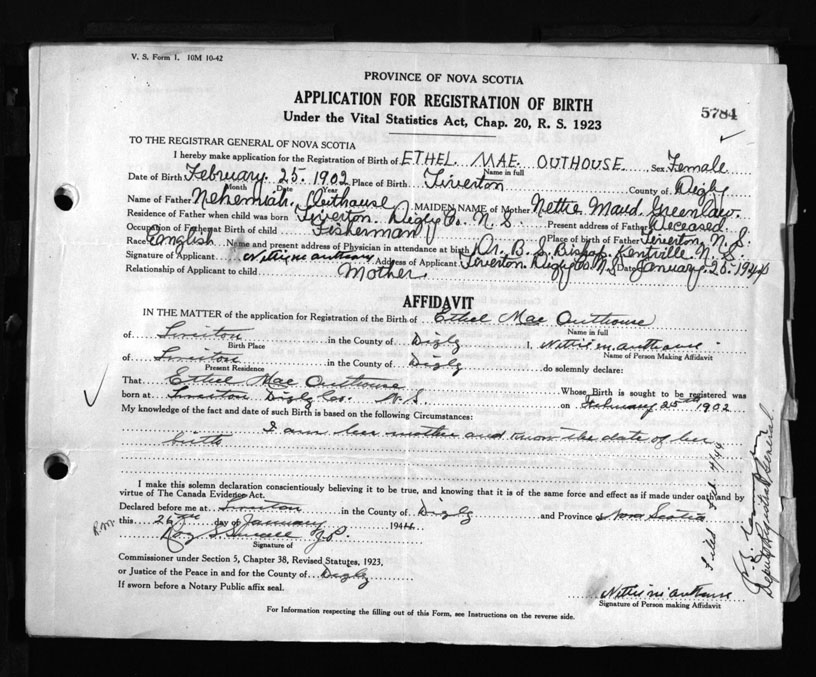 V. S. Form 1. 10M 10-42
PROVINCE OF NOVA SCOTIA
APPLICATION FOR REGISTRATION OF BIRTH
5784
Under the Vital Statistics Act, Chap. 20, R. S. 1923
TO THE REGISTRAR GENERAL OF NOVA SCOTIA
I hereby make application for the Registration of Birth of ETHEL MAE OUTHOUSE Sex Female
Name in full
Date of Birth February 25. 1902 Place of Birth Tiverton County of Digby
Month Date Year
Name of Father Nehemiah Outhouse MAIDEN NAME of Mother Nettie Maud Greenlaw.
Residence of Father when child was born Tiverton. Digby Co. N. S. Present address of Father Deceased.
Occupation of Father at Birth of child Fisherman Place of birth of Father Tiverton, N. S.
Race English Name and present address of Physician in attendance at birth Dr. B. S. Bishop. Kentville N. S.
Signature of Applicant Nettie m outhouse Address of Applicant Tiverton. Digby Co N. S. Date January. 25. 1944
Relationship of Applicant to child Mother.
AFFIDAVIT
IN THE MATTER of the application for Registration of the Birth of Ethel Mae Outhouse
Name in full
of Tiverton in the County of Digby I, Nettie m outhouse
Birth Place Name of Person Making Affidavit
of Tiverton in the County of Digby do solemnly declare:
Present Residence
That Ethel Mae Outhouse Whose Birth is sought to be registered was
born at Tiverton Digby Co. N. S. on February 25th 1902
My knowledge of the fact and date of such Birth is based on the following Circumstances:
I am her mother and know the date of her
birth
I make this solemn declaration conscientiously believing it to be true, and knowing that it is of the same force and effect as if made under oath and by
virtue of The Canada Evidence Act.
Declared before me at Tiverton in the County of Digby and Province of Nova Scotia
this day of January 1944
J.P.
Signature of
Commissioner under Section 5, Chapter 38, Revised Statutes, 1923,
or Justice of the Peace in and for the County of Digby
If sworn before a Notary Public affix seal.
Nettie m outhouse
Signature of Person making Affidavit
For Information respecting the filling out of this Form, see Instructions on the reverse side.
Filed Feb. 4/44
Deputy Registrar General